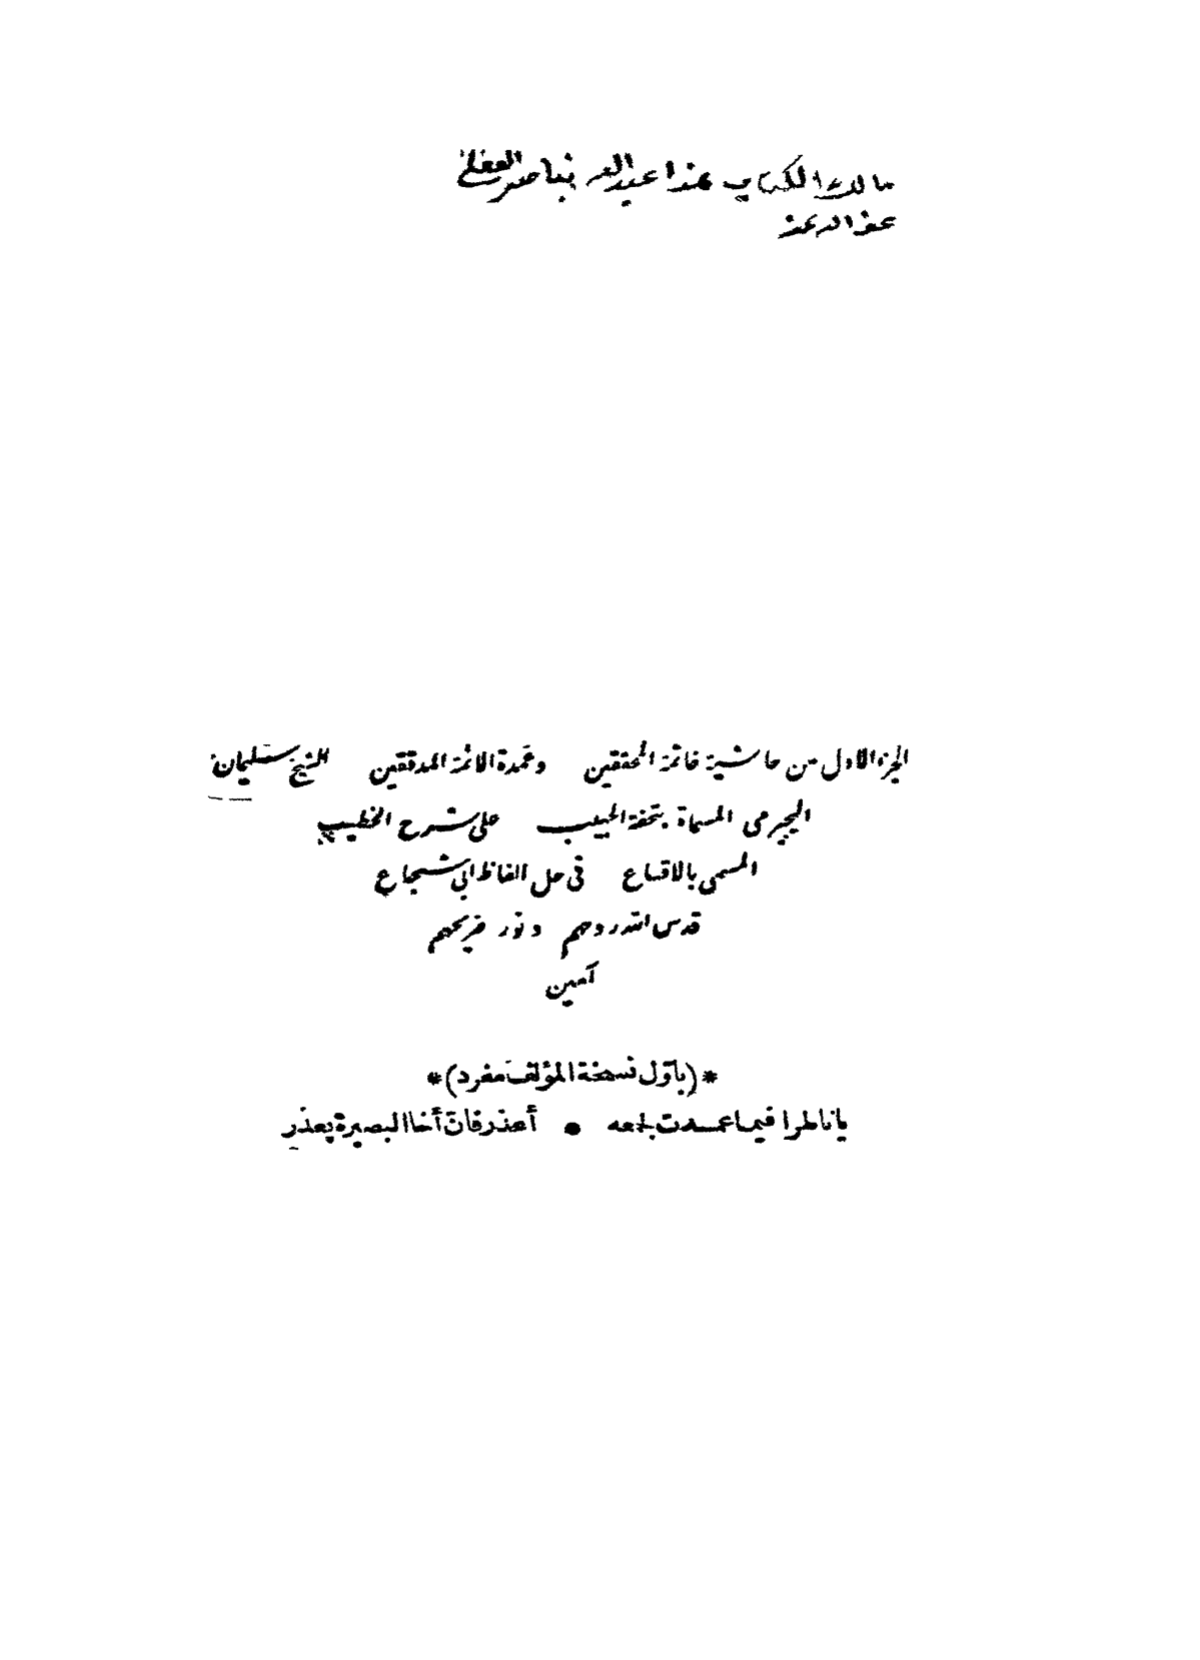 مالك الكتاب هذا عبدالله بن ناصر
عفى الله عنه
الجزء الاول من حاشية خاتمة المحققين وعمدة الائمة المدققين الشيخ سليمان
البجيرمى المسماة بتحفة الحبيب على شرح الخطيب
المسمى بالاقناع فى حل الفاظ ابى شجاع
قدس الله روحهم ونور ضريحهم
آمين
*(بأول نسخة المؤلف مفرد)*
يا ناظرا فيما عمدت لجمعه • أعذر فان أخا البصيرة يعذر